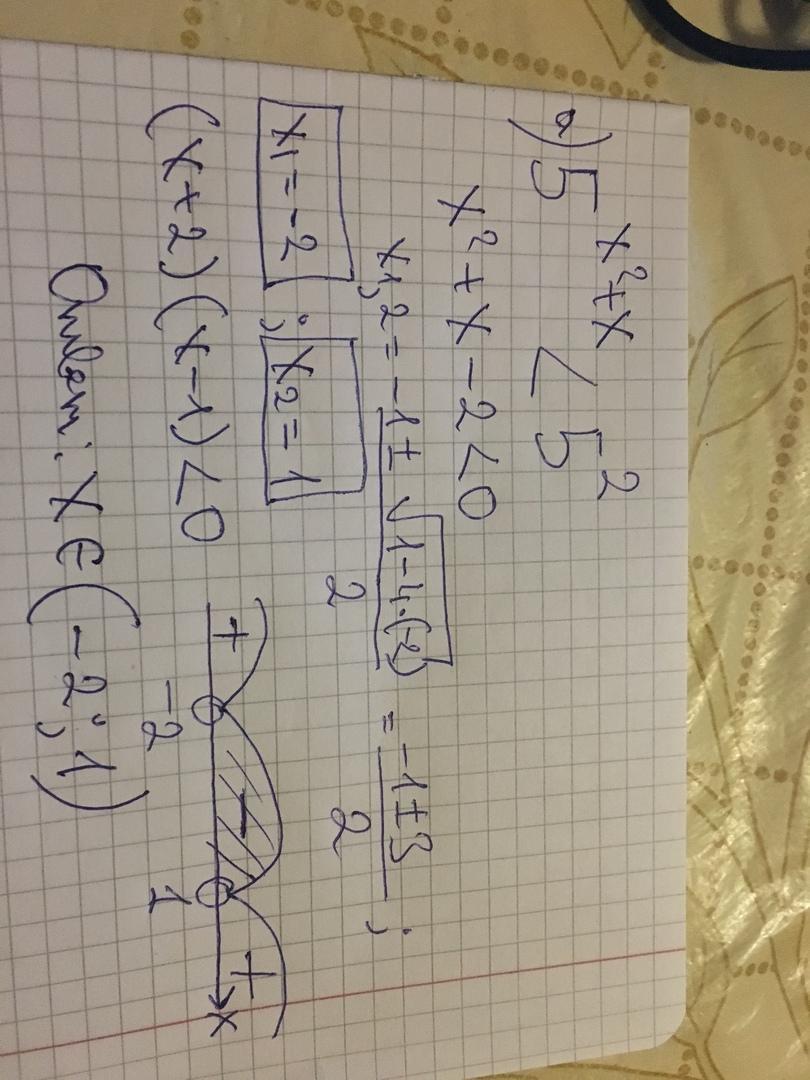 а) 5^(x²+x) < 5²
x²+x-2<0
x1,2 = (-1±√(1-4·(-2)))/2 = (-1±3)/2 ;
x1=-2 ; x2=1
(x+2)(x-1)<0
+ - +
-2 1 x
Ответ: x∈(-2;1)